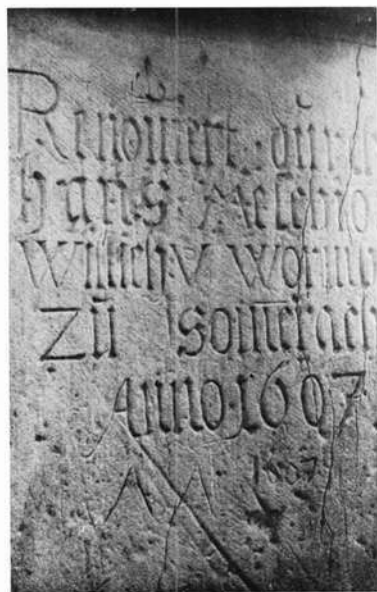 Renoviert · durch
hans · Melchio
Willich · V Wormb
Zu Somerach
Anno · 1607 ·
1887